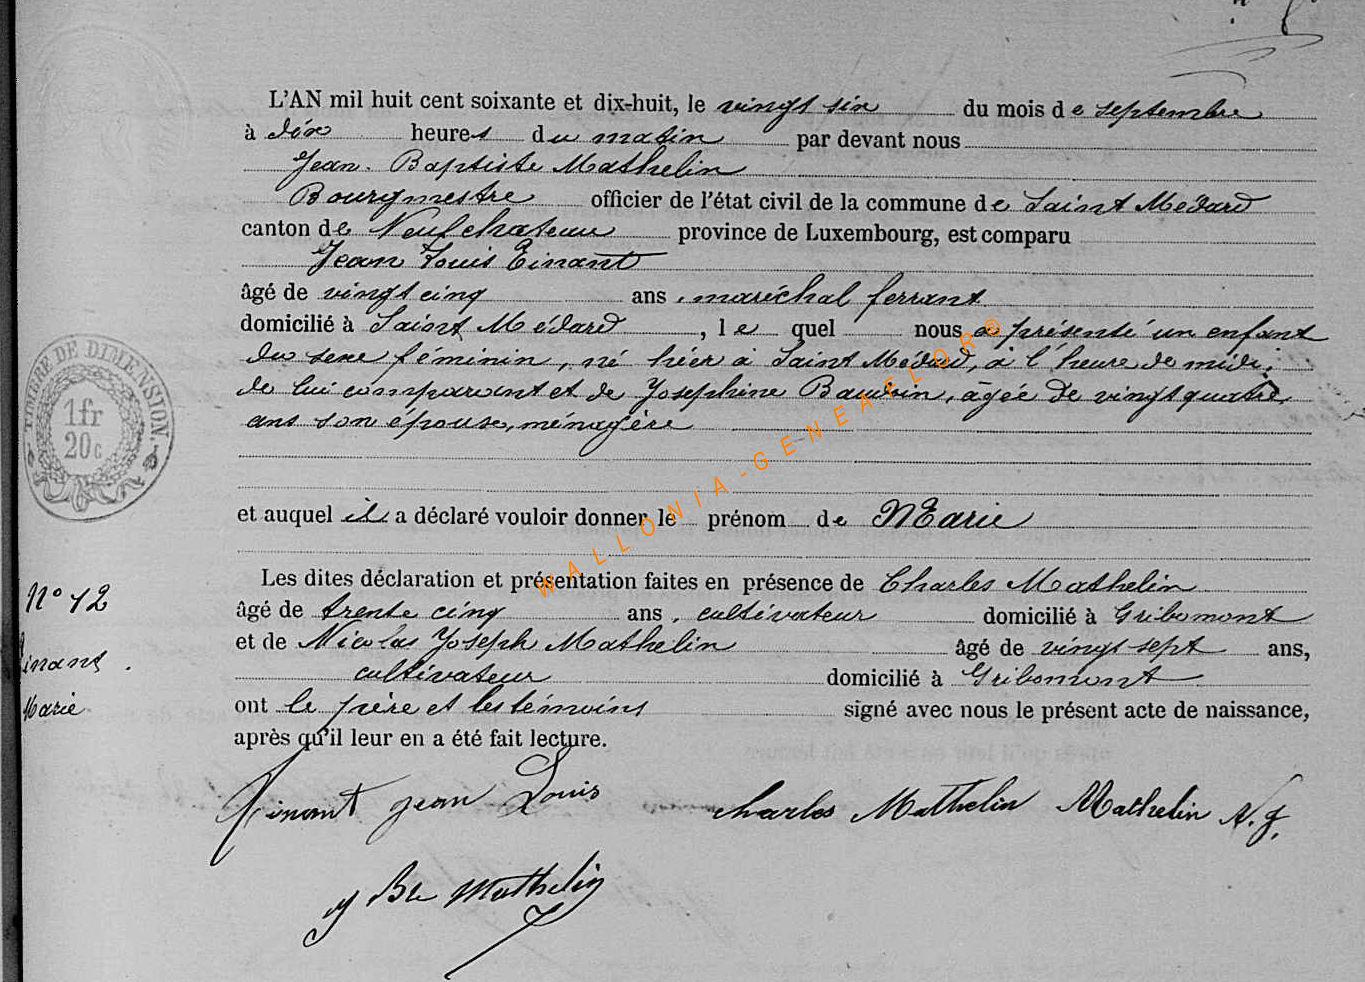 L'AN mil huit cent soixante et dix-huit, le vingt six du mois de septembre
à dix heures du matin par devant nous
Jean Baptiste Mathelin
Bourgmestre officier de l'état civil de la commune de Saint Médard
canton de Neufchateau province de Luxembourg, est comparu
Jean Louis
âgé de vingt cinq ans, maréchal ferrant
domicilié à Saint Médard, le quel nous a présenté un enfant
du sexe féminin, né hier à Saint Médard, à l'heure de midi;
de lui comparant et de Josephine Baudoin, âgée de vingt quatre
ans son épouse, ménagère
et auquel il a déclaré vouloir donner le prénom de Marie
Les dites déclaration et présentation faites en présence de Charles Mathelin
âgé de trente cinq ans, cultivateur domicilié à Gribomont
et de Nicolas Joseph Mathelin âgé de vingt sept ans,
cultivateur domicilié à Gribomont
ont le père et les témoins signé avec nous le présent acte de naissance,
après qu'il leur en a été fait lecture.
Jean Louis Charles Mathelin Mathelin N. J.
J Bte Mathelin
N° 12
Marie
TIMBRE DE DIMENSION
1fr
20c
WALLONIA-GENEALOR©